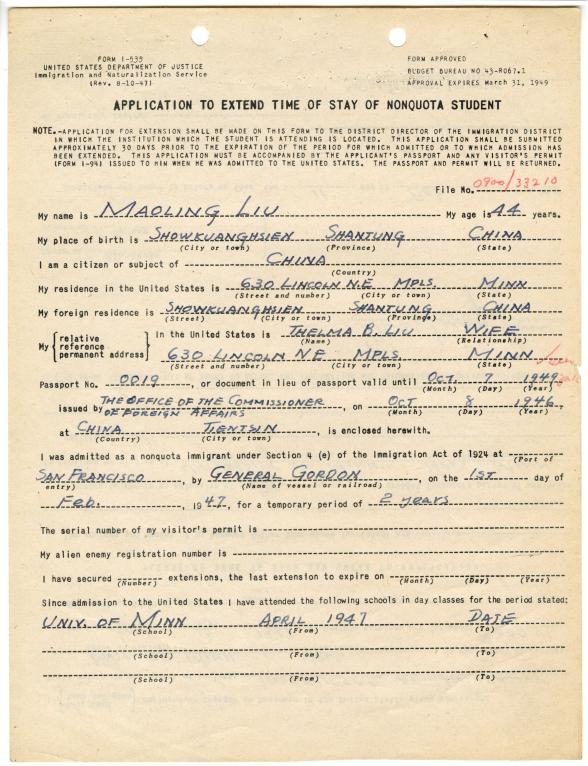 FORM I-535
UNITED STATES DEPARTMENT OF JUSTICE
Immigration and Naturalization Service
(Rev. 8-10-47)
FORM APPROVED
BUDGET BUREAU NO 43-R067.1
APPROVAL EXPIRES March 31, 1949
APPLICATION TO EXTEND TIME OF STAY OF NONQUOTA STUDENT
NOTE.-APPLICATION FOR EXTENSION SHALL BE MADE ON THIS FORM TO THE DISTRICT DIRECTOR OF THE IMMIGRATION DISTRICT
IN WHICH THE INSTITUTION WHICH THE STUDENT IS ATTENDING IS LOCATED. THIS APPLICATION SHALL BE SUBMITTED
APPROXIMATELY 30 DAYS PRIOR TO THE EXPIRATION OF THE PERIOD FOR WHICH ADMITTED OR TO WHICH ADMISSION HAS
BEEN EXTENDED. THIS APPLICATION MUST BE ACCOMPANIED BY THE APPLICANT'S PASSPORT AND ANY VISITOR'S PERMIT
(FORM I-94) ISSUED TO HIM WHEN HE WAS ADMITTED TO THE UNITED STATES. THE PASSPORT AND PERMIT WILL BE RETURNED.
File No. 0900/33210
My name is MAOLING LIU My age is 44 years.
My place of birth is SHOWKUANGHSIEN SHANTUNG CHINA
(City or town) (Province) (State)
I am a citizen or subject of CHINA
(Country)
My residence in the United States is 630 LINCOLN N.E. MPLS. MINN
(Street and number) (City or town) (State)
My foreign residence is SHOWKUANGHSIEN SHANTUNG CHINA
(Street) (City or town) (Province) (State)
My { relative reference permanent address } in the United States is THELMA B. LIU WIFE
(Name) (Relationship)
630 LINCOLN N E MPLS. MINN
(Street and number) (City or town) (State)
Passport No. 0019, or document in lieu of passport valid until OCT. 7 1949
(Month) (Day) (Year)
issued by THE OFFICE OF THE COMMISSIONER OF FOREIGN AFFAIRS, on OCT 8 1946,
(Month) (Day) (Year)
at CHINA TIENTSIN, is enclosed herewith.
(Country) (City or town)
I was admitted as a nonquota immigrant under Section 4 (e) of the Immigration Act of 1924 at
(Port of
SAN FRANCISCO, by GENERAL GORDON, on the 1ST day of
entry) (Name of vessel or railroad)
Feb., 1947, for a temporary period of 2 years
The serial number of my visitor's permit is
My alien enemy registration number is
I have secured extensions, the last extension to expire on
(Number) (Month) (Day) (Year)
Since admission to the United States I have attended the following schools in day classes for the period stated:
UNIV. OF MINN APRIL 1947 DATE
(School) (From) (To)
(School) (From) (To)
(School) (From) (To)